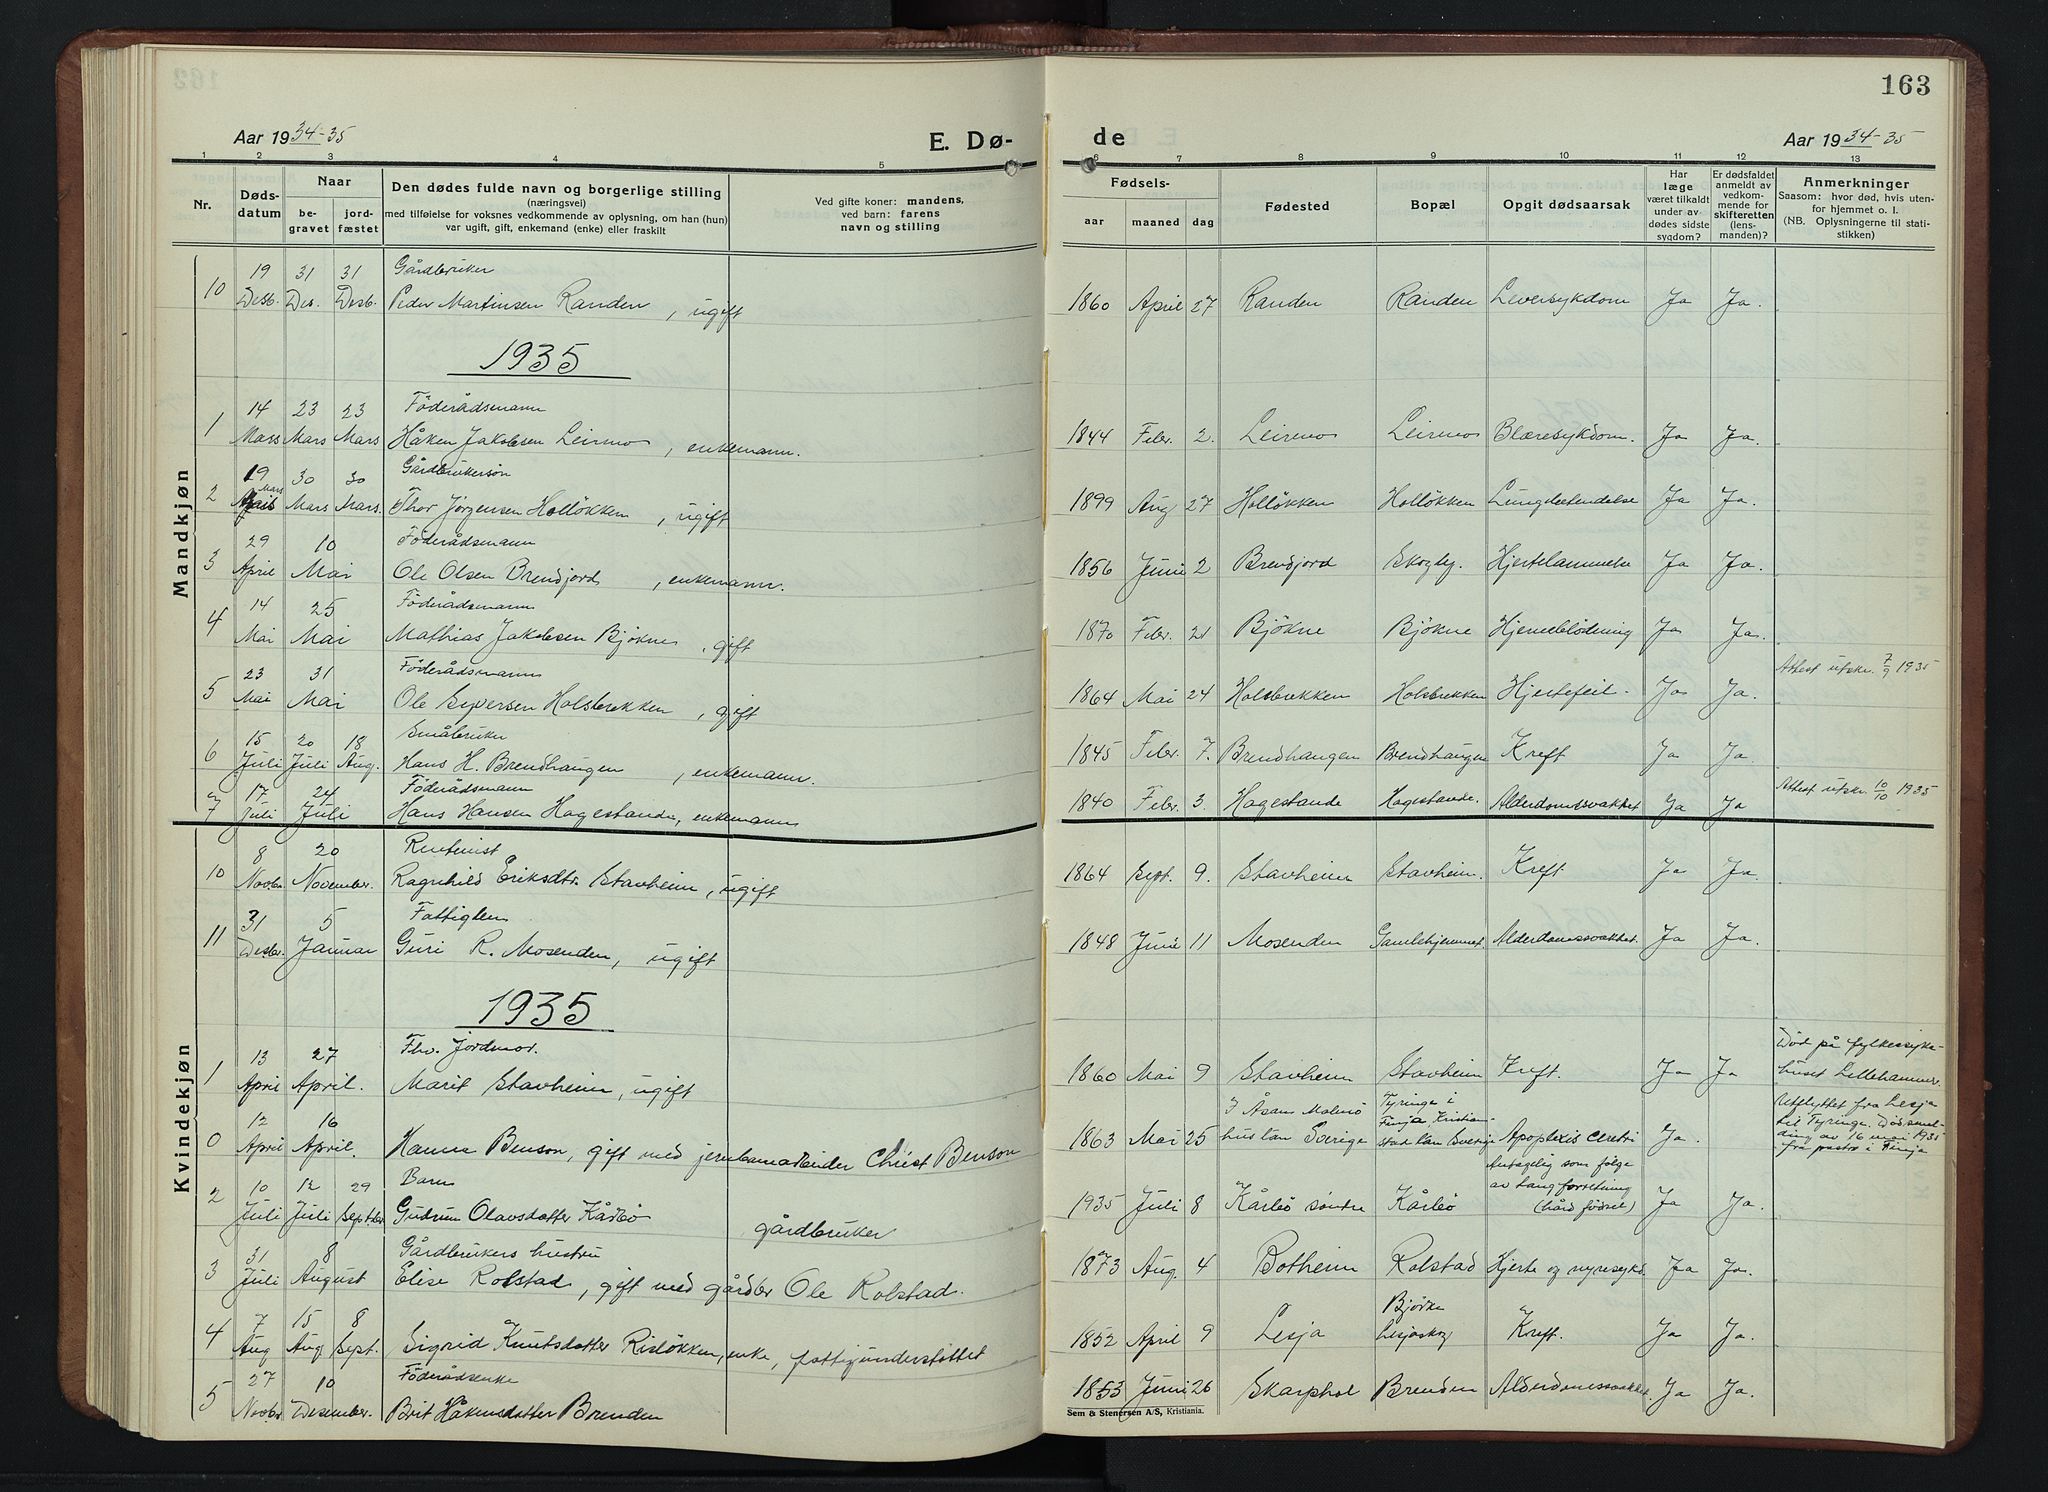 163
Aar 1934-35 E. Dø- de Aar 1934-35
1 2 3 4 5 6 7 8 9 10 11 12 13
Nr.
Døds-
datum
Naar
be-
gravet
jord-
fæstet
Den dødes fulde navn og borgerlige stilling
(næringsvei)
med tilføielse for voksnes vedkommende av oplysning, om han (hun)
var ugift, gift, enkemand (enke) eller fraskilt
Ved gifte koner: mandens,
ved barn: farens
navn og stilling
Fødsels-
aar maaned dag
Fødested
Bopæl
Opgit dødsaarsak
Har
læge
været tilkaldt
under av-
dødes sidste
sygdom?
Er dødsfaldet
anmeldt av
vedkom-
mende for
skifteretten
(lens-
manden)?
Anmerkninger
Saasom: hvor død, hvis uten-
for hjemmet o. l.
(NB. Oplysningerne til stati-
stikken)
Mandkjøn
19 31 31 Gårdbruker
10 Desb. Des. Desb. Peder Martinsen Randen, ugift 1860 April 27 Randen Randen Leversykdom Ja Ja.
1935
14 23 23 Föderådsmann
1 Mars Mars Mars Håken Jakobsen Leirmo, enkemann. 1844 Febr. 2. Leirmo Leirmo Blæresykdom. Ja Ja.
19 30 30 Gårdbrukersön
2 Mars Mars Mars. Thor Jörgensen Holløkken, ugift 1899 Aug 27 Holløkken Holløkken Lungebetendelse Ja Ja.
29 10 Föderådsmann
3 April Mai Ole Olsen Brendjord, enkemann. 1856 Juni 2 Brendjord Skogby. Hjertelammelse Ja Ja.
14 25 Föderådsmann
4 Mai Mai Mathias Jakobsen Bjøkne, gift 1870 Febr. 21 Bjøkne Bjøkne Hjerneblödning Ja Ja.
23 31 Föderådsmann Attest utskr. 7/9 1935
5 Mai Mai Ole Syversen Holsbrekken, gift 1864 Mai 24 Holsbrekken Holsbrekken Hjertefeil. Ja Ja.
15 20 18 Småbruker
6 Juli Juli Aug. Hans H. Brendhaugen, enkemann. 1845 Febr. 7. Brendhaugen Brendhaugen Kreft Ja Ja.
17 24 Föderådsmann Attest utskr. 10/10 1935
7 Juli Juli Hans Hansen Hagestande, enkemann 1840 Febr. 3. Hagestande Hagestande. Alderdomssvakhet Ja Ja
Kvindekjøn
8 20 Rentenist
10 Novbr. November. Ragnhild Eriksdtr. Stavheim, ugift 1864 Sept. 9. Stavheim Stavheim. Kreft. Ja Ja.
31 5 Fattiglem
11 Desbr. Januar Guri R. Mosenden, ugift 1848 Juni 11 Mosenden Gamlehjemmet. Alderdomssvakhet. Ja Ja.
1935
13 27 Fhv. Jordmor.
1 April April. Marit Stavheim, ugift 1860 Mai 9 Stavheim Stavheim Kreft. Ja Ja Död på fylkessyke-
huset Lillehammer.
12 16
0 April April. Hanna Benson, gift med jernbanearbeider Christ Benson 1863 Mai 25 I Åsan Malmö
hus län Sverige Tyringe i
Finja, Kristian-
stad län Sverige Apoplexis cerebri Ja. Utflyttet fra Lesja
til Tyringe. Dödsmel-
ding av 16 mai 1935
fra pastor i Finja
10 12 29 Barn
2 Juli Juli Septbr Gudrun Olavsdatter Kårbö gårdbruker 1935 Juli 8 Kårbö söndre Kårbö Antagelig som følge
av tang forretning
(hård fødsel) Ja Ja.
31 8 Gårdbrukers hustru
3 Juli August Elise Rolstad, gift med gårdbr Ole Rolstad. 1873 Aug. 4 Botheim Rolstad Hjerte og nyresykd. Ja Ja.
7 15 8
4 Aug Aug Sept. Sigrid Knutsdatter Risløkken, enke, fattigunderstøttet 1852 April 9 Lesja Bjørke
Lesjaskog Kreft. Ja Ja.
27 10 Föderådsenke
5 Novbr Desember. Brit Håkensdatter Brenden 1853 Juni 26 Skarphol Brenden Alderdomssvakhet Ja Ja.
Sem & Stenersen A/S, Kristiania.